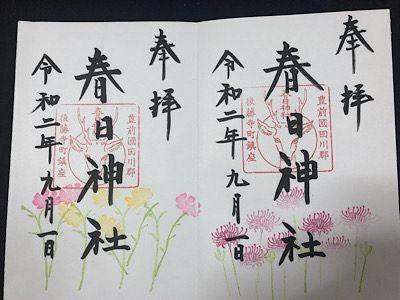 奉拝
豊前國田川郡
春日神社
春日神社
後藤寺町鎮座
令和二年九月一日
奉拝
豊前國田川郡
春日神社
後藤寺町鎮座
令和二年九月一日